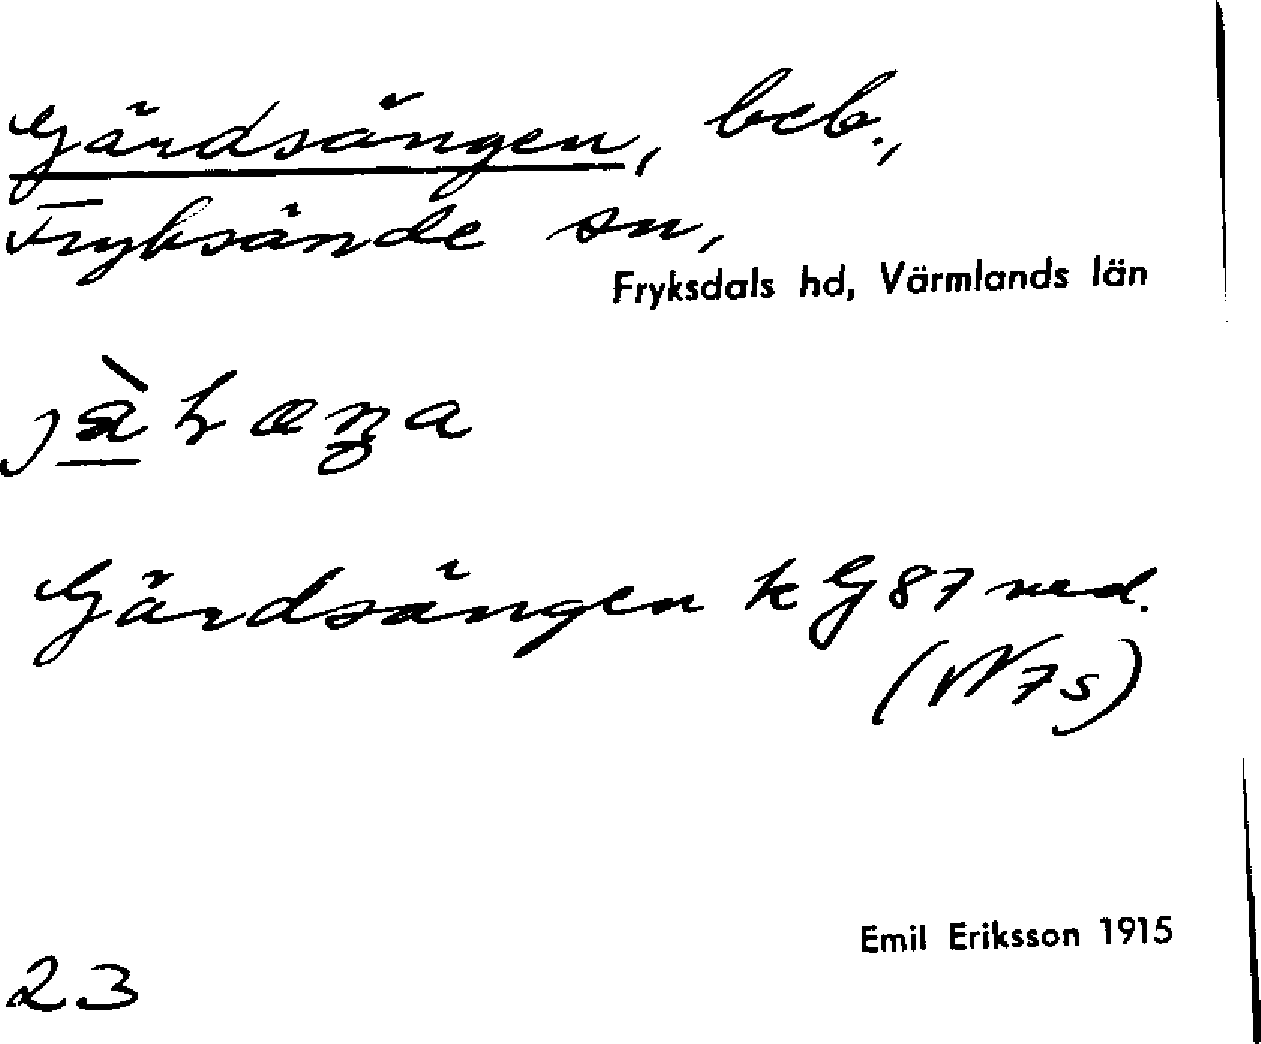 Gärdsängen, beb.,
Fryksände sn,
Fryksdals hd, Värmlands län
Gärdsängen k G 87 ned.
(W 7 s)
Emil Eriksson 1915
23